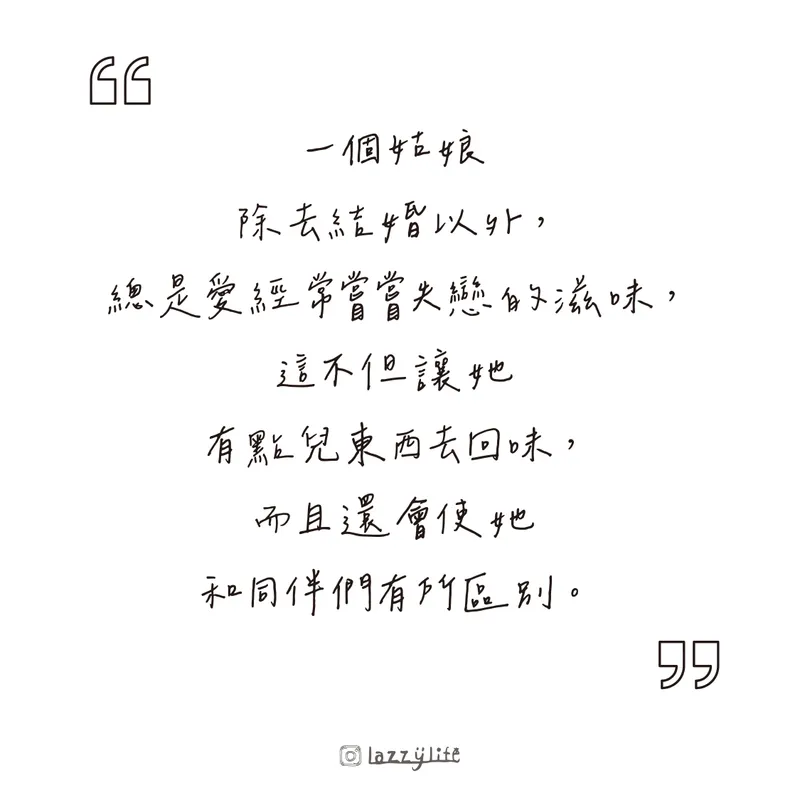 一個姑娘
除去結婚以外，
總是愛經常嘗嘗失戀的滋味，
這不但讓她
有點兒東西去回味，
而且還會使她
和同伴們有所區別。
lazzylife